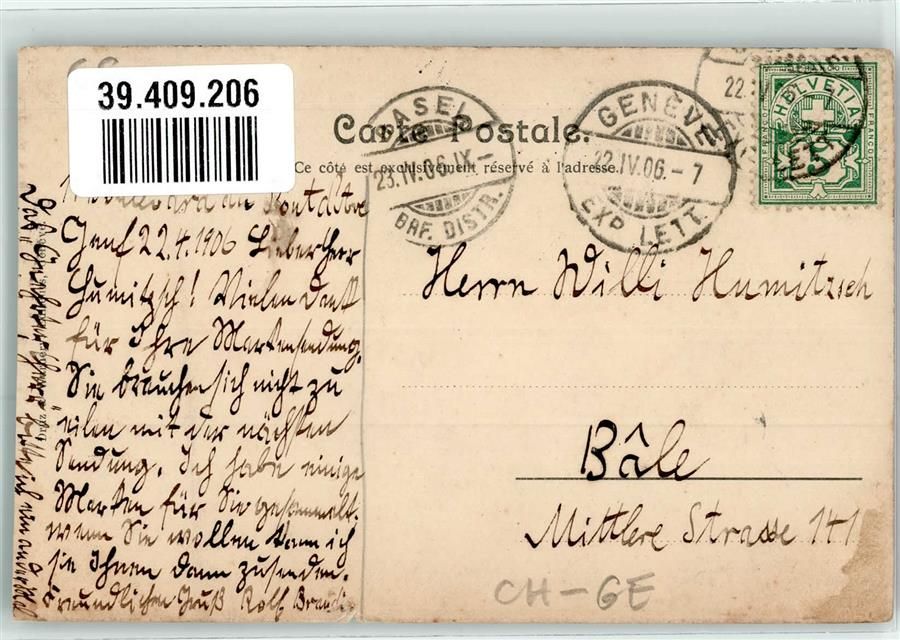 39.409.206
Carte Postale.
Ce côté est exclusivement réservé à l'adresse.
BASEL
23.IV.06.IX-
BRF. DISTR.
GENÈVE
22.IV.06.-7
EXP. LETT.
22.
HELVETIA
FRANCO
Genf 22.4.1906 Lieber Herr
Humitzsch! Vielen Dank
für Ihre Markensendung.
Sie brauchen sich nicht zu
eilen mit der nächsten
Sendung. Ich habe einige
Marken für Sie gesammelt.
wenn Sie wollen kann ich
sie Ihnen dann zusenden.
Freundlichen Gruß Rolf
Herrn Willi Humitzsch
Bâle
Mittlere Strasse 141
CH-GE